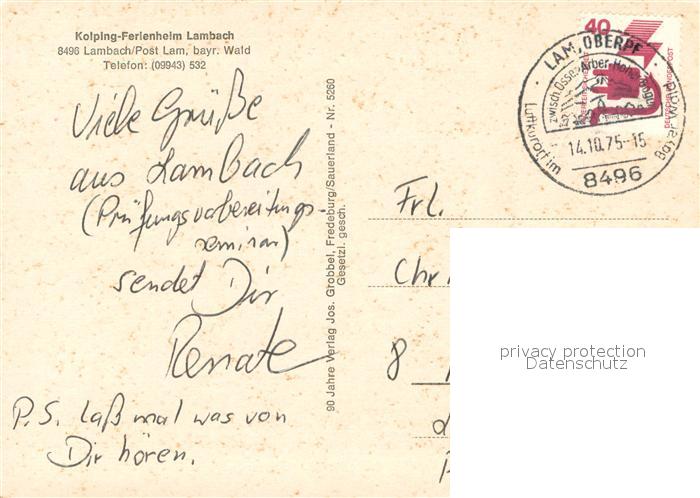 Kolping-Ferienheim Lambach
8496 Lambach/Post Lam, bayr. Wald
Telefon: (09943) 532
Viele Grüße
aus Lambach
(Prüfungsvorbereitungs-
seminar)
sendet Dir
Renate
P.S. Laß mal was von
Dir hören.
90 Jahre Verlag Jos. Grobbel, Fredeburg/Sauerland - Nr. 5260
Gesetzl. gesch.
40
DEUTSCHE BUNDESPOST
LAM, OBERPF
zwisch. Osser-Arber-Hohenbogen
14.10.75-15
Luftkurort im Bayer Wald
8496
Frl.
Chr
8
privacy protection
Datenschutz